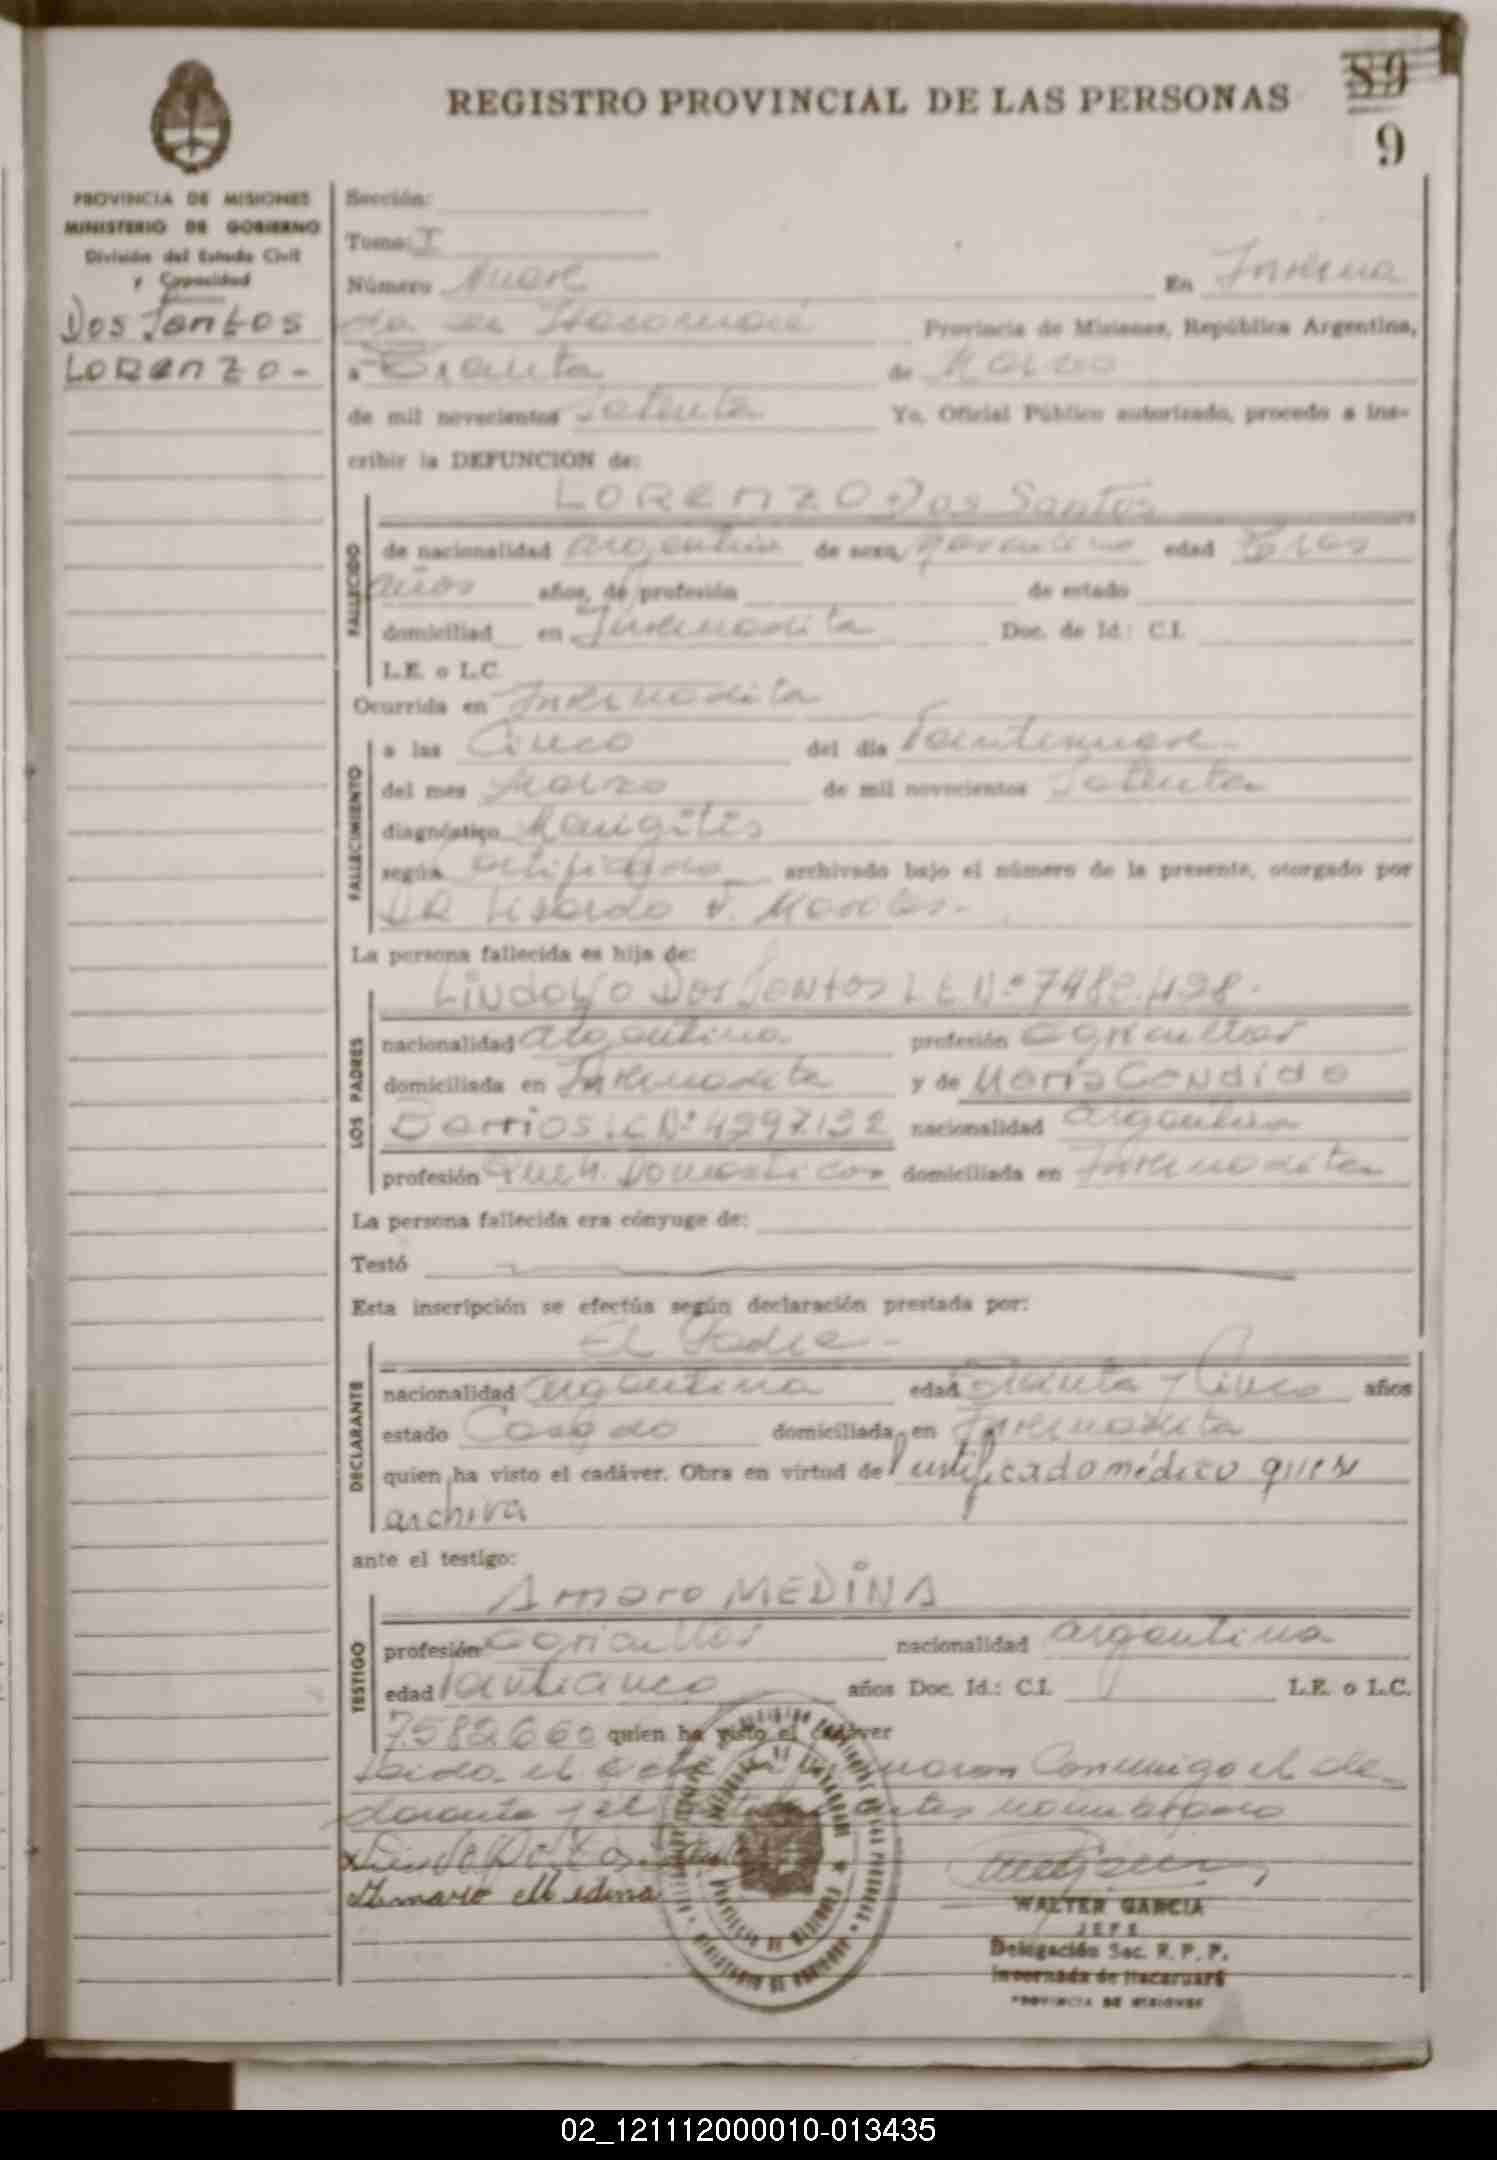 REGISTRO PROVINCIAL DE LAS PERSONAS
89
9
PROVINCIA DE MISIONES
MINISTERIO DE GOBIERNO
División del Estado Civil
y Capacidad
Dos Santos
LORENZO -
Sección:
Tomo: I
Número Nueve En Inverna
da de Itacaruaré Provincia de Misiones, República Argentina,
a Treinta de Marzo
de mil novecientos Setenta Yo, Oficial Público autorizado, procedo a ins-
cribir la DEFUNCION de:
LORENZO Dos Santos
FALLECIDO
de nacionalidad argentina de sexo Masculino edad Tres
años años, de profesión de estado
domiciliad en Invernadita Doc. de Id.: C.I.
L.E. o L.C.
Ocurrida en Invernadita
FALLECIMIENTO
a las Cinco del día Veintinueve -
del mes Marzo de mil novecientos Setenta
diagnóstico
según Certificado archivado bajo el número de la presente, otorgado por
DR Lisardo Morales -
La persona fallecida es hija de:
Lindolfo Dos Santos L E Nº 7482.428 -
LOS PADRES
nacionalidad argentina profesión agricultor
domiciliada en Invernadita y de María Candida
Barrios LC Nº 4297132 nacionalidad argentina
profesión Queh. Domesticos domiciliada en Invernadita
La persona fallecida era cónyuge de:
Testó
Esta inscripción se efectúa según declaración prestada por:
El Padre -
DECLARANTE
nacionalidad argentina edad Treinta y Cinco años
estado Casado domiciliada en Invernadita
quien ha visto el cadáver. Obra en virtud de certificado médico que se
archiva
ante el testigo:
Amaro MEDINA
TESTIGO
profesión agricultor nacionalidad argentina
edad años Doc. Id.: C.I. L.E. o L.C.
7582660 quien ha visto el cadáver
Leida el acta Conmigo el de-
clarante y el antes nombrado
Medina
WALTER GARCIA
JEFE
Delegación Sec. R. P. P.
Invernada de Itacaruaré
PROVINCIA DE MISIONES
02_121112000010-013435